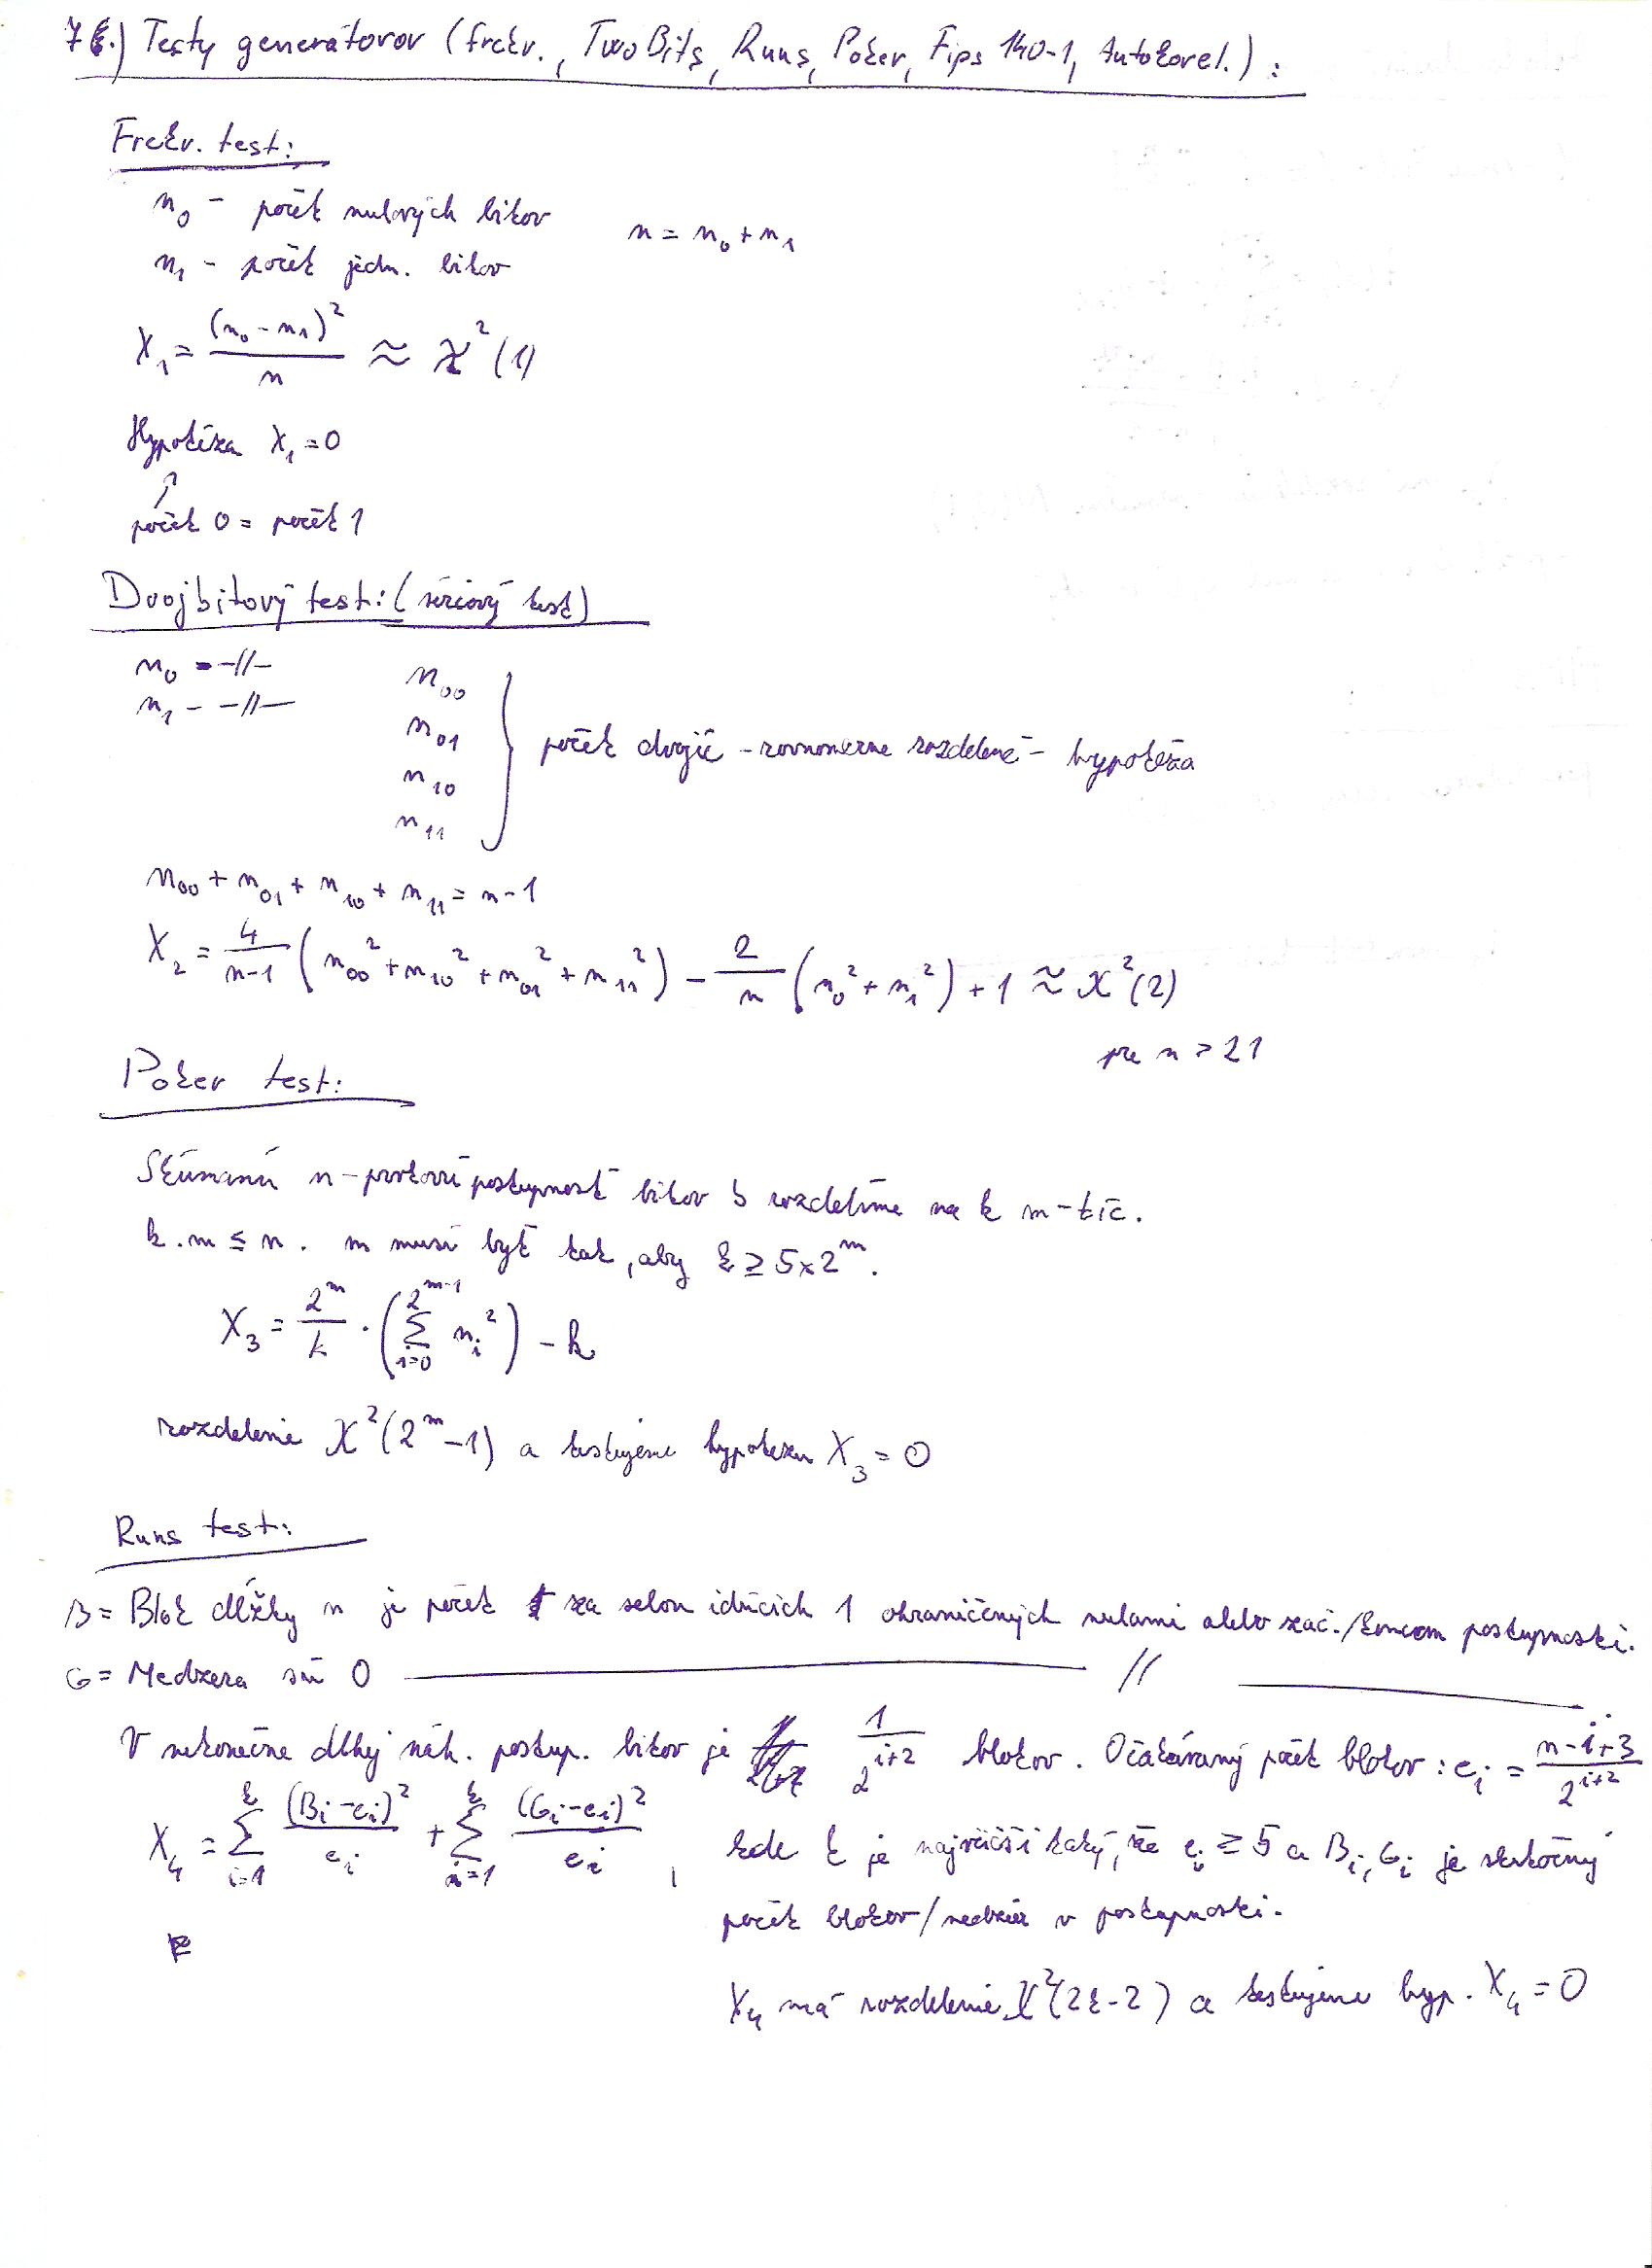 7.) Testy generátorov (frekv., TwoBits, Runs, Poker, Fips 140-1, Autokorel.):
Frekv. test:
n₀ - počet nulových bitov
n = n₀ + n₁
n₁ - počet jedn. bitov
X₁ = (n₀ - n₁)² / n ≈ χ²(1)
Hypotéza X₁ = 0
počet 0 = počet 1
Dvojbitový test: (sériový test)
n₀ - -//-
n₁ - -//-
n₀₀
n₀₁
n₁₀
n₁₁
počet dvojíc - rovnomerne rozdelené - hypotéza
n₀₀ + n₀₁ + n₁₀ + n₁₁ = n-1
X₂ = 4/(n-1) (n₀₀² + n₁₀² + n₀₁² + n₁₁²) - 2/n (n₀² + n₁²) + 1 ≈ χ²(2)
pre n > 21
Poker test:
Skúmanú n-prvkovú postupnosť bitov b rozdelíme na k m-tíc.
k.m ≤ n. m musí byť tak, aby k ≥ 5×2^m.
X₃ = 2^m/k · (∑_{i=0}^{2^m-1} n_i²) - k
rozdelenie χ²(2^m - 1) a testujeme hypotezu X₃ = 0
Runs test:
B = Blok dĺžky n je počet za sebou idúcich 1 ohraničených nulami alebo zač./koncom postupnosti.
G = Medzera sú 0 —— // ——
V nekonečne dlhej náh. postup. bitov je 1/2^{i+2} blokov. Očakávaný počet blokov: e_i = (n-i+3)/2^{i+2}
X₄ = ∑_{i=1}^{k} (B_i - e_i)²/e_i + ∑_{i=1}^{k} (G_i - e_i)²/e_i , kde k je najväčší taký, že e_i ≥ 5 a B_i, G_i je skutočný
počet blokov/medzier v postupnosti.
X₄ má rozdelenie χ²(2k-2) a testujeme hyp. X₄ = 0